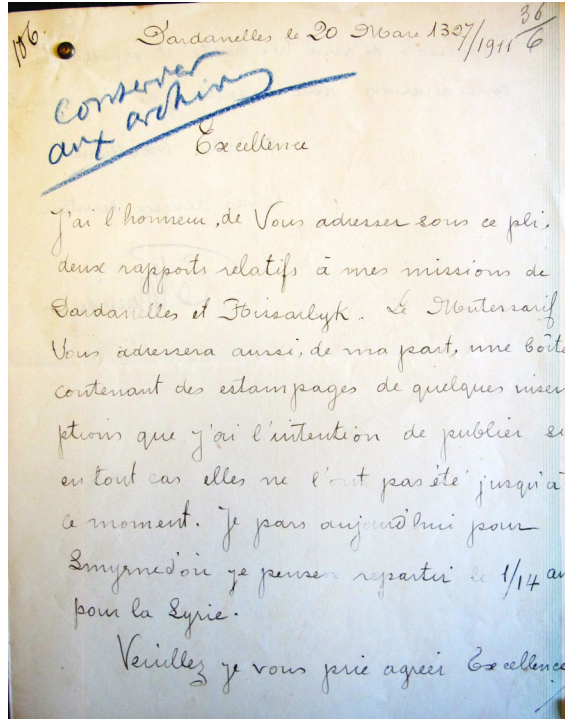 106.
Dardanelles le 20 Mars 1327/1911
36/6
conserver
aux archives
Excellence
J'ai l'honneur, de Vous adresser sous ce pli,
deux rapports relatifs à mes missions de
Dardanelles et Hissarlyk. Le Mutessarif
Vous adressera aussi, de ma part, une boîte
contenant des estampages de quelques inscri
ptions que j'ai l'intention de publier si
en tout cas elles ne l'ont pas été jusqu'à
ce moment. Je pars aujourd'hui pour
Smyrne d'où je pense repartir le 1/14 av
pour la Syrie.
Veuillez je vous prie agréer Excellence